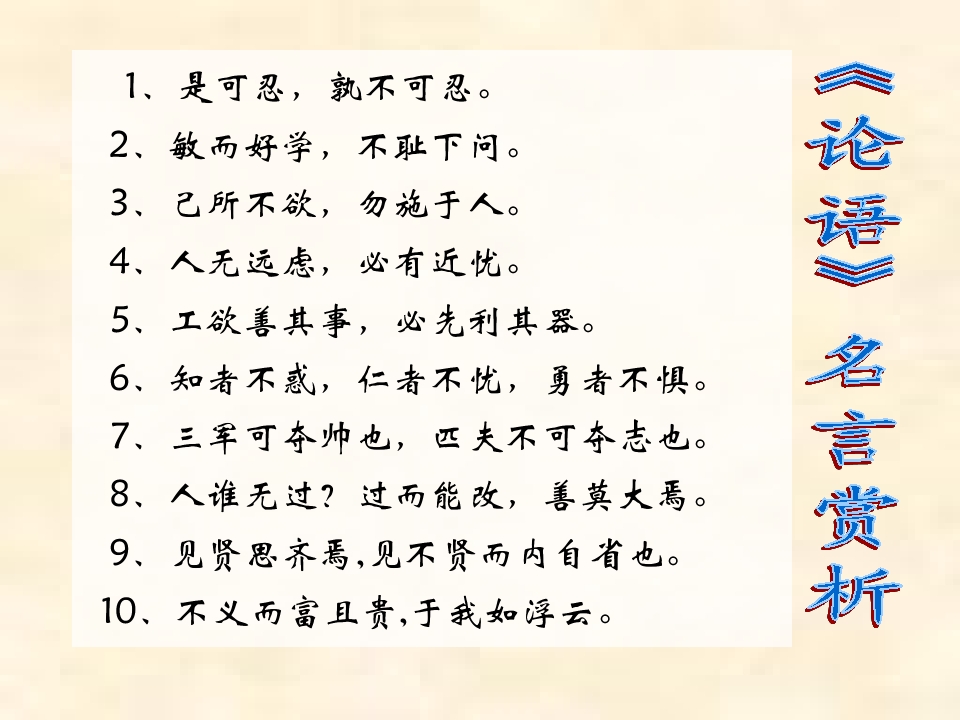 1、是可忍，孰不可忍。
2、敏而好学，不耻下问。
3、己所不欲，勿施于人。
4、人无远虑，必有近忧。
5、工欲善其事，必先利其器。
6、知者不惑，仁者不忧，勇者不惧。
7、三军可夺帅也，匹夫不可夺志也。
8、人谁无过？过而能改，善莫大焉。
9、见贤思齐焉,见不贤而内自省也。
10、不义而富且贵,于我如浮云。
《论语》名言赏析